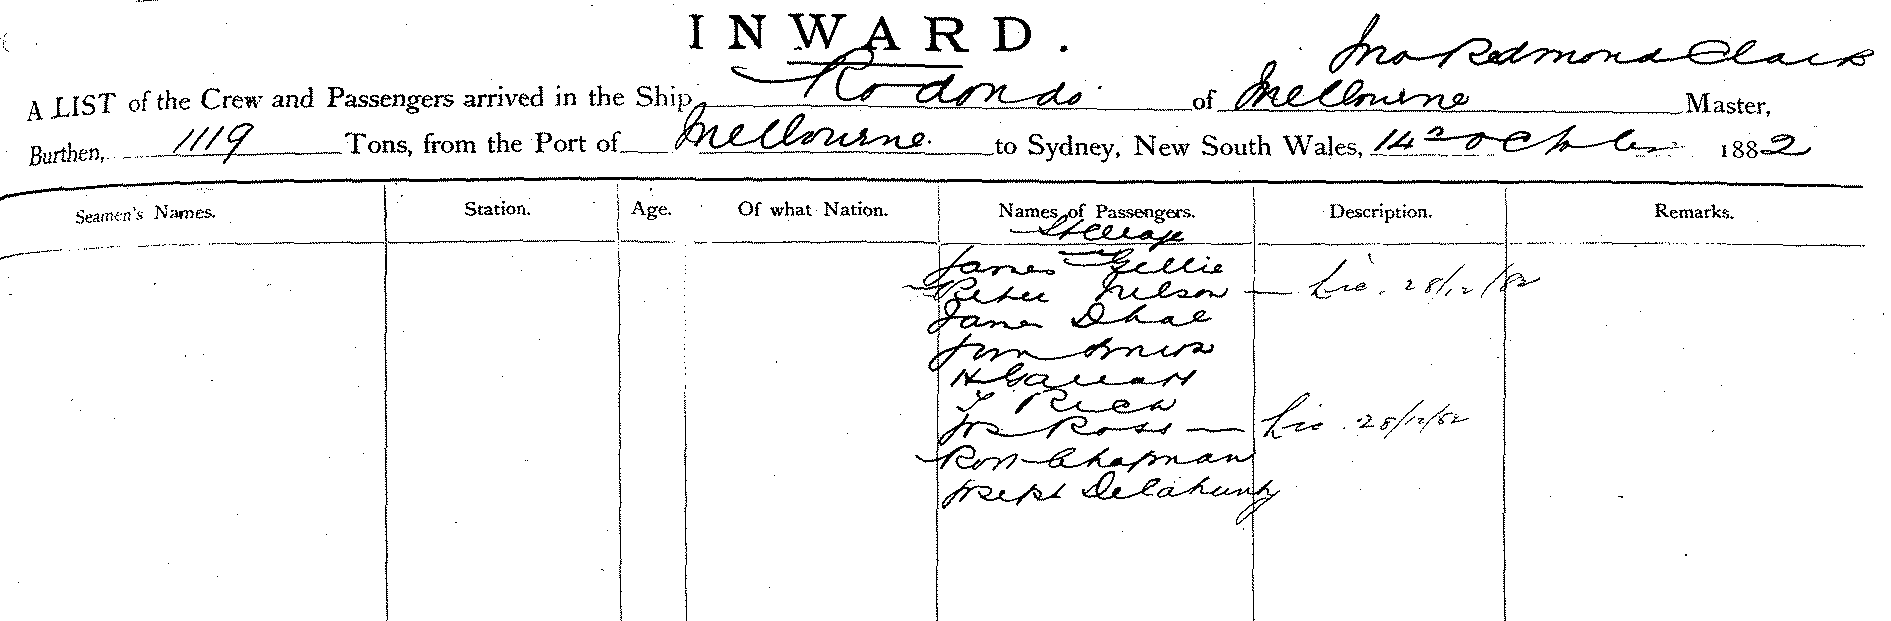 INWARD.
Jno Redmond Clark
A LIST of the Crew and Passengers arrived in the Ship Rodondo of Melbourne Master,
Burthen, 1119 Tons, from the Port of Melbourne to Sydney, New South Wales, 14 October 1882
Seamen's Names. Station. Age. Of what Nation. Names of Passengers. Description. Remarks.
Steerage
James Gellie
Peter Nelson — Lic. 28/12/82
James
H Garratt
T Rich
Jas Ross — Lic. 28/12/82
Robt Chapman
Joseph Delahunty